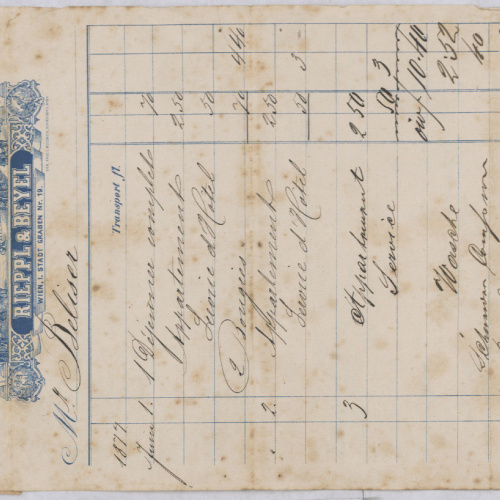 RIEPPL & BEYEL
WIEN, I. STADT GRABEN Nr. 19.
Mr. Beliser
Transport fl.
1877
Juni 1. 1 Dejeuner complete 70
Appartement 2.50
Service d'Hotel 50
2 Bougies 70 4.40
2. Appartement 2.50
Service d'Hotel 50 3
3 Appartement 2 50
Service 50 3
10.40
Wäsche 2.52